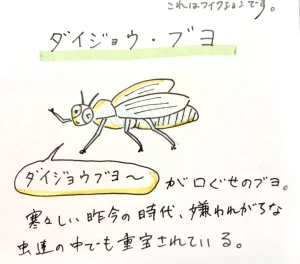 これはフィクションです。
ダイジョウ・ブヨ
ダイジョウブヨ〜 が口ぐせのブヨ。
寒々しい昨今の時代、嫌われがちな
虫達の中でも重宝されている。